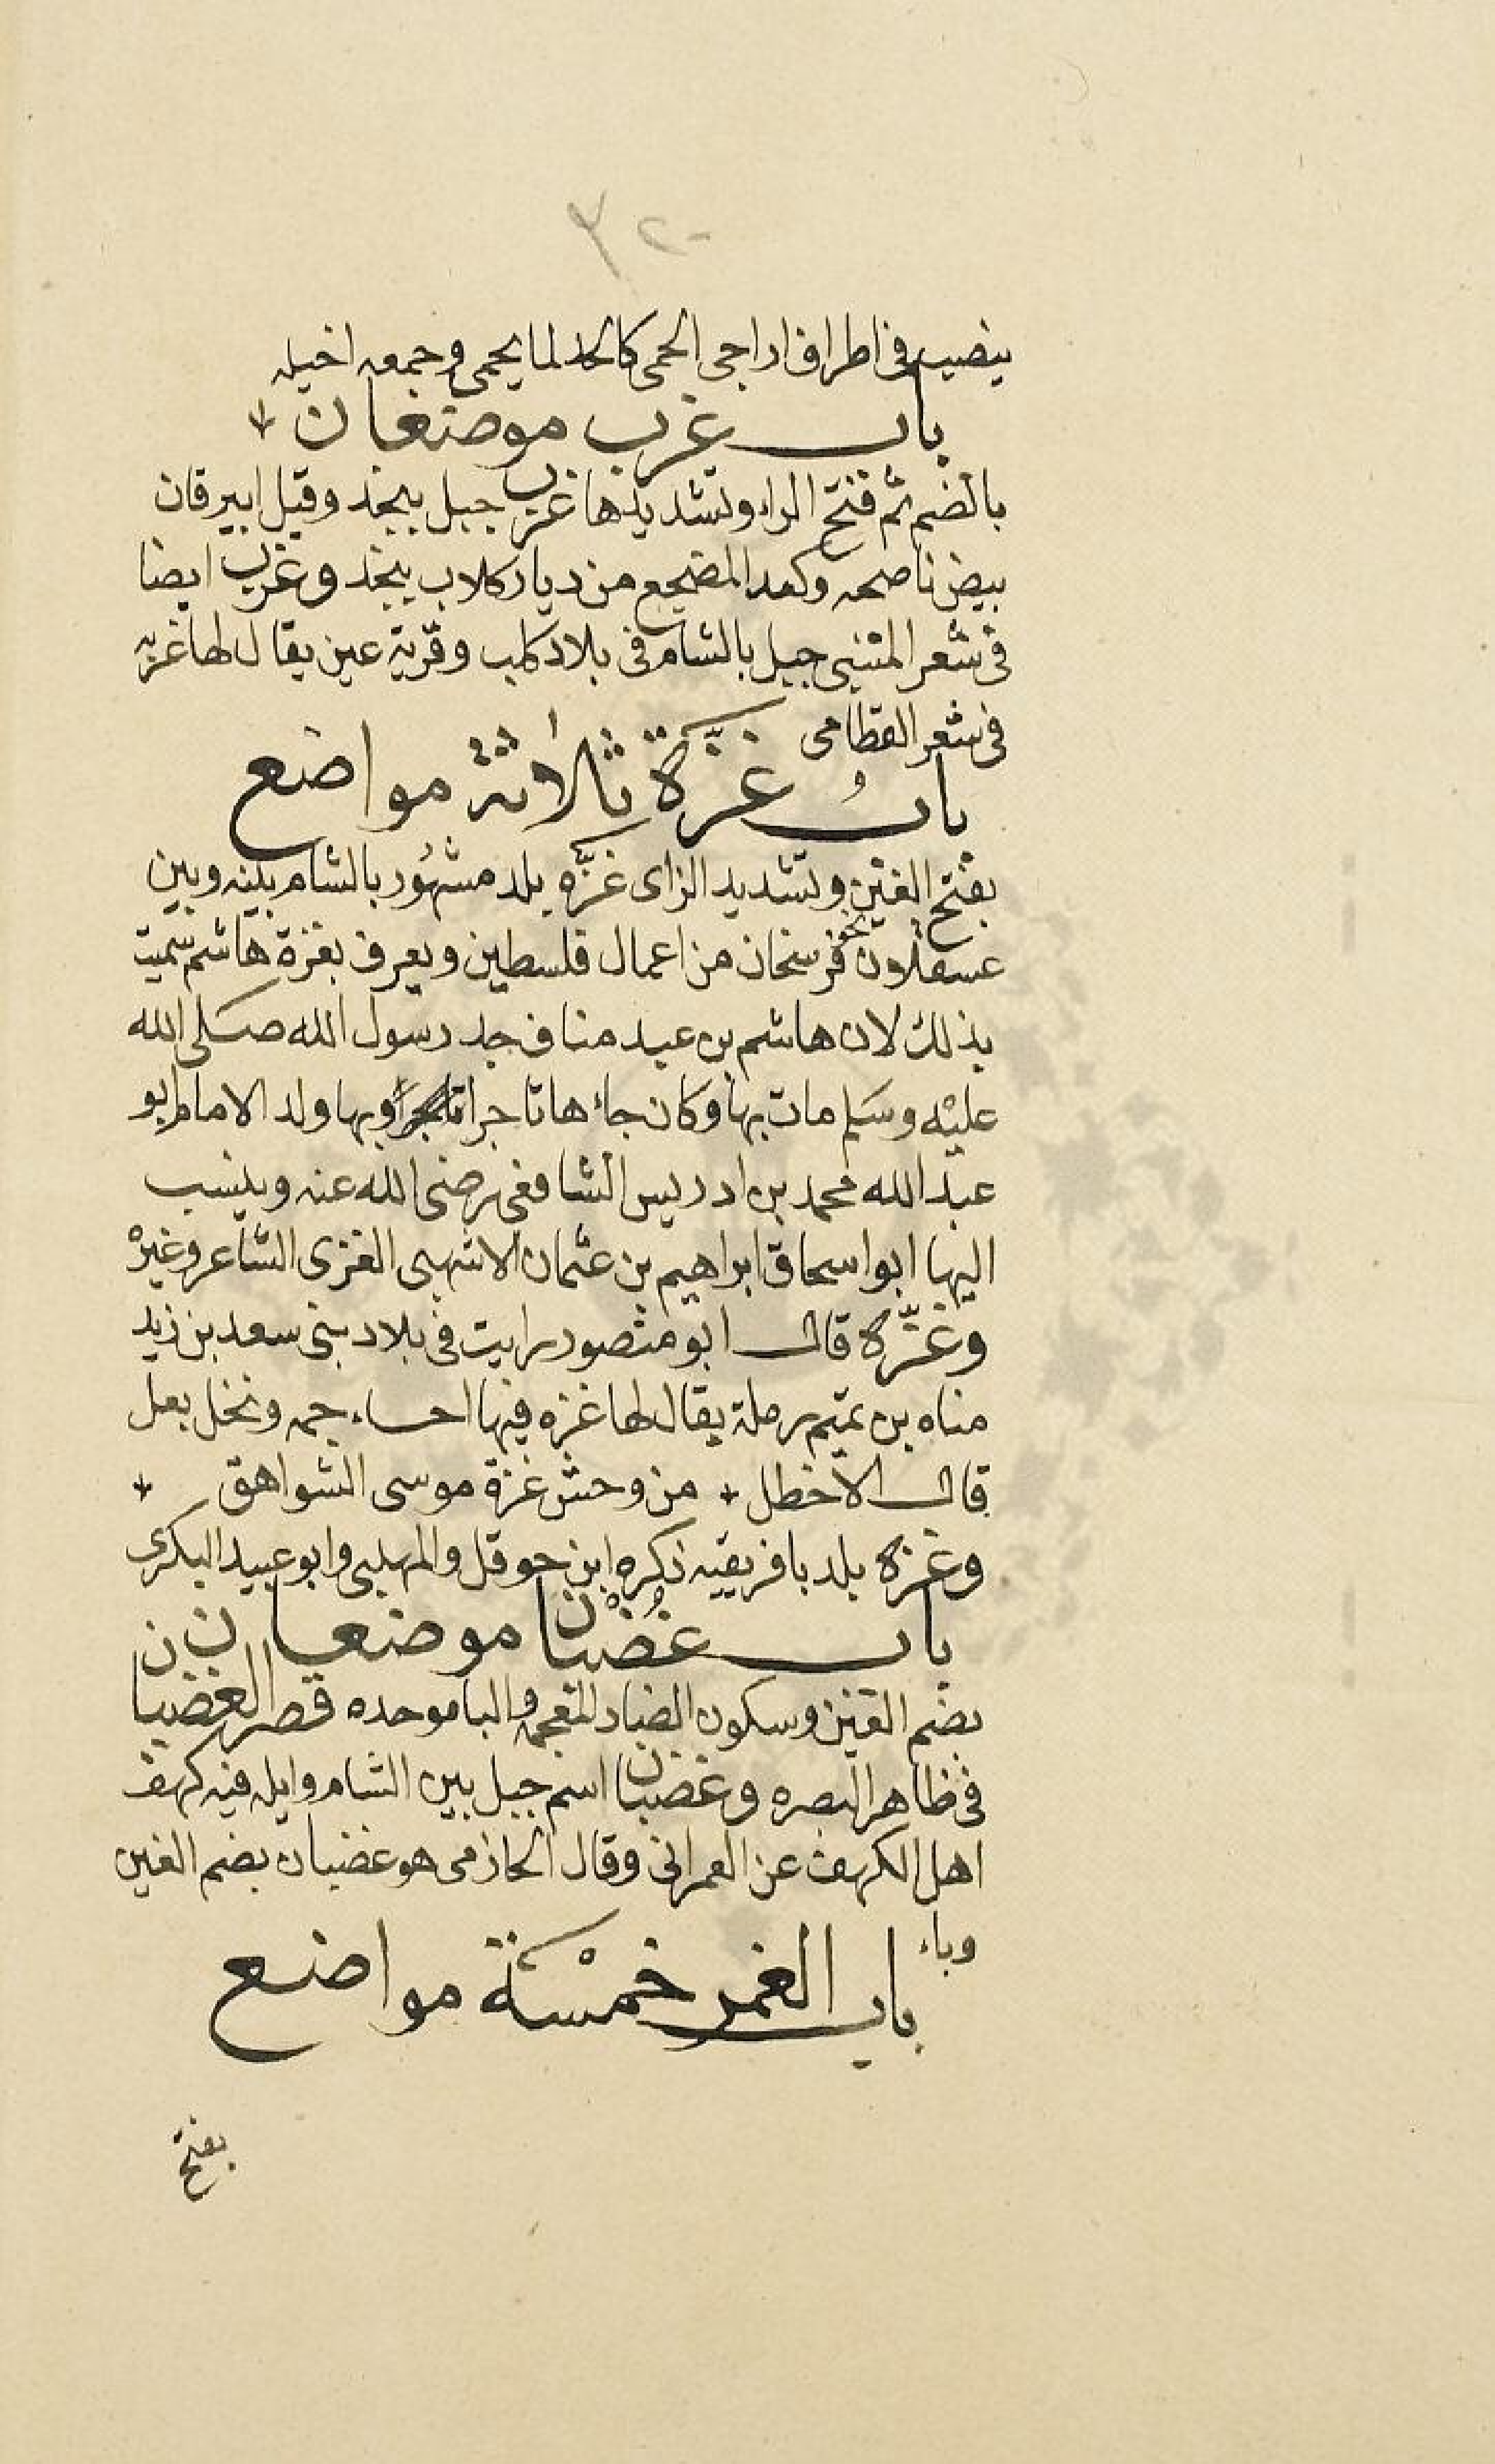 ٣٢٠
ينصب فى اطراف اراجى الحمى كالحد لما يحمى وجمعه اخيله
باب غرب موضعان
بالضم ثم فتح الراء وتشديدها غرب جبل بنجد وقيل ابيرقان
بيض ناصحه وكعد المضجع من ديار كلاب بنجد وغرب ايضا
فى شعر المتنبى جبل بالشام فى بلاد كلب وقربة عين يقال لها غربه
فى شعر القطامى
باب غزة ثلاثة مواضع
بفتح الغين وتشديد الزاى غزه بلد مشهور بالشام بينه وبين
عسقلان نحو فرسخان من اعمال فلسطين ويعرف بغزة هاشم سميت
بذلك لان هاشم بن عبد مناف جد رسول الله صلى الله
عليه وسلم مات بها وكان جاءها تاجرا وبها ولد الامام ابو
عبد الله محمد بن ادريس الشافعى رضى الله عنه وينسب
اليها ابو اسحاق ابراهيم بن عثمان الاشهبى الغزى الشاعر وغيره
وغزه قال ابو منصور رايت فى بلاد بنى سعد بن زيد
مناه بن تميم رملة يقال لها غزه فيها احساء جمه ونخل بعل
قال الاخطل من وحش غزة موسى الشواهق
وغزة بلد بافريقيه ذكره ابن حوقل والمهلبى وابو عبيد البكرى
باب غضبان موضعان
بضم الغين وسكون الضاد المعجمه والبا موحده قصر الغضبان
فى ظاهر البصره وغضبان اسم جبل بين الشام وايله فيه كهف
اهل الكهف عن العمرانى وقال الحازمى هو غضبان بضم الغين
وباء
باب الغمر خمسة مواضع
بفتح